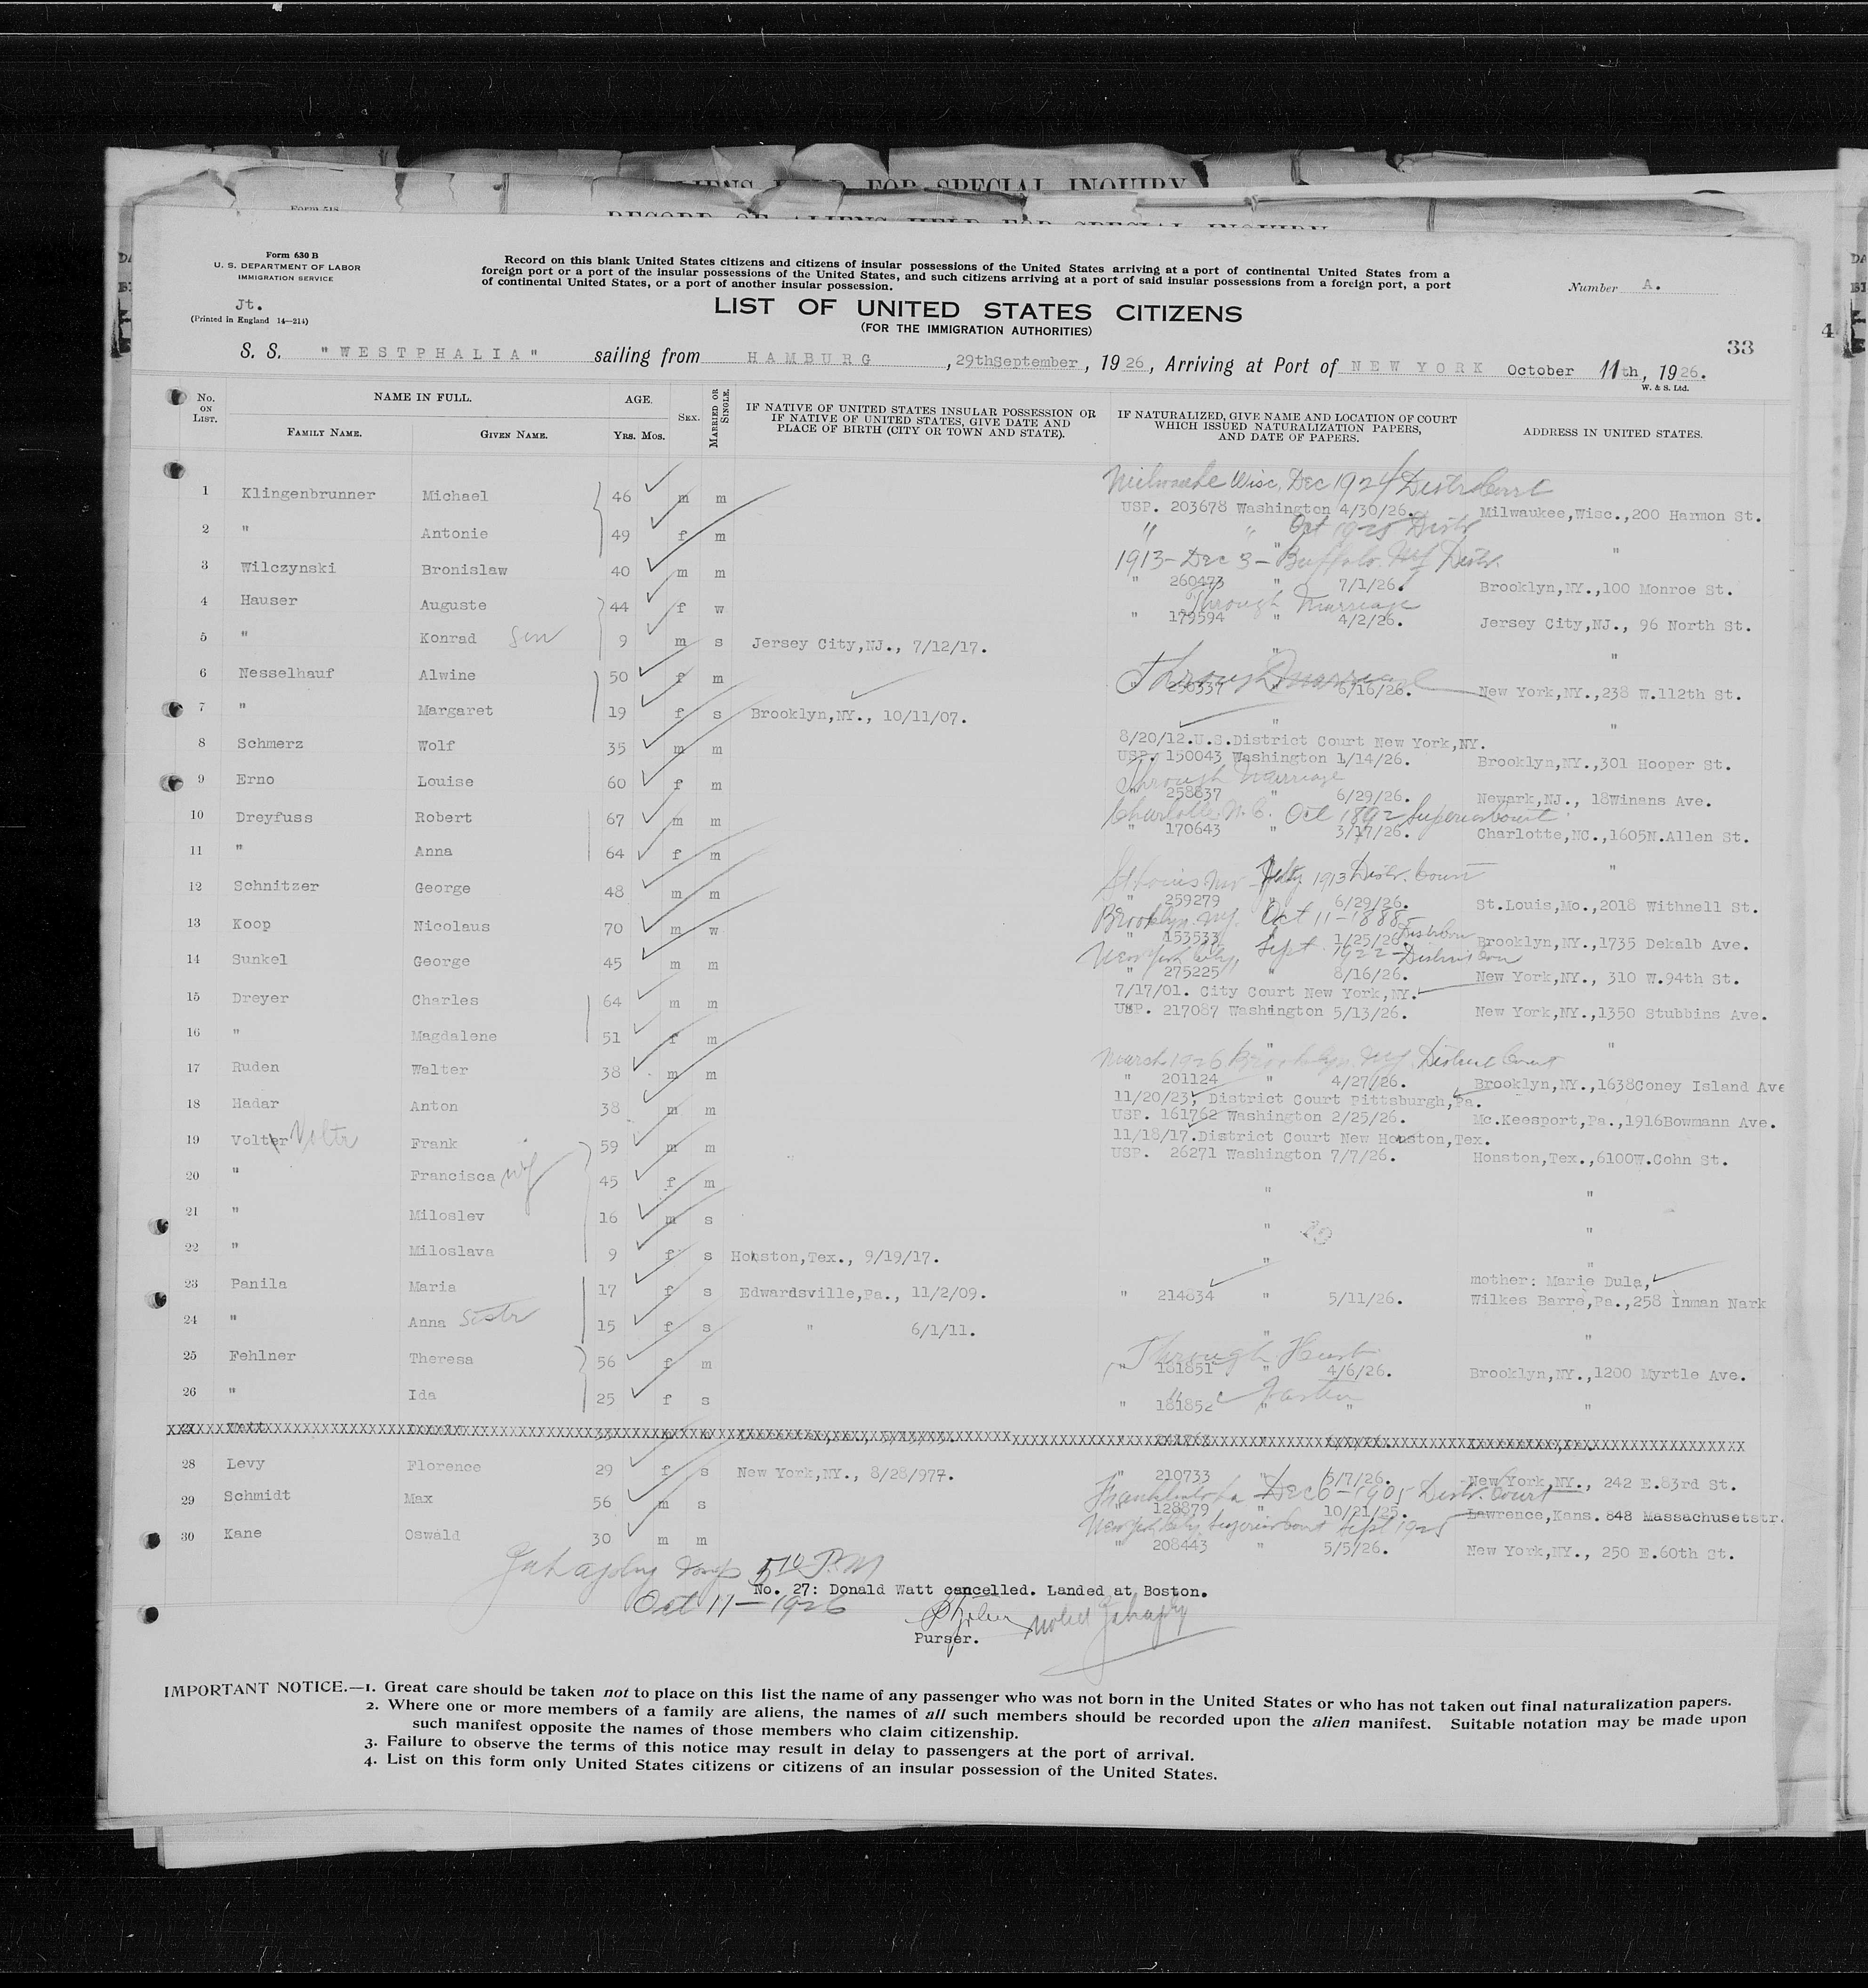 ALIENS HELD FOR SPECIAL INQUIRY
RECORD OF ALIENS HELD FOR SPECIAL INQUIRY
Form 518
Form 630 B
U. S. DEPARTMENT OF LABOR
IMMIGRATION SERVICE
Jt.
(Printed in England 14—214)
Record on this blank United States citizens and citizens of insular possessions of the United States arriving at a port of continental United States from a
foreign port or a port of the insular possessions of the United States, and such citizens arriving at a port of said insular possessions from a foreign port, a port
of continental United States, or a port of another insular possession.
Number A.
LIST OF UNITED STATES CITIZENS
(FOR THE IMMIGRATION AUTHORITIES)
33
4
S. S. "WESTPHALIA" sailing from HAMBURG, 29thSeptember, 1926, Arriving at Port of NEW YORK October 11th, 1926.
W. & S. Ltd.
No. ON LIST. NAME IN FULL. FAMILY NAME. GIVEN NAME. AGE. Yrs. Mos. SEX. MARRIED OR SINGLE. IF NATIVE OF UNITED STATES INSULAR POSSESSION OR IF NATIVE OF UNITED STATES, GIVE DATE AND PLACE OF BIRTH (CITY OR TOWN AND STATE). IF NATURALIZED, GIVE NAME AND LOCATION OF COURT WHICH ISSUED NATURALIZATION PAPERS, AND DATE OF PAPERS. ADDRESS IN UNITED STATES.
Milwaukee Wisc. Dec 1924 Distr Court
1 Klingenbrunner Michael 46 m m USP. 203678 Washington 4/30/26. Milwaukee,Wisc.,200 Harmon St.
" " Oct 1925 Distr
2 " Antonie 49 f m " "
1913 - Dec 3 - Buffalo. NY Distr.
3 Wilczynski Bronislaw 40 m m " 260473 " 7/1/26. Brooklyn,NY.,100 Monroe St.
Through Marriage
4 Hauser Auguste 44 f w " 179594 " 4/2/26. Jersey City,NJ., 96 North St.
5 " Konrad Son 9 m s Jersey City,NJ., 7/12/17. " "
Through Marriage
6 Nesselhauf Alwine 50 f m " 250337 " 6/16/26. New York,NY.,238 W.112th St.
7 " Margaret 19 f s Brooklyn,NY., 10/11/07. " "
8/20/12.U.S.District Court New York,NY.
8 Schmerz Wolf 35 m m USP. 150043 Washington 1/14/26. Brooklyn,NY.,301 Hooper St.
Through Marriage
9 Erno Louise 60 f m " 258837 " 6/29/26. Newark,NJ., 18Winans Ave.
Charlotte. N.C. Oct 1892 Superior Court
10 Dreyfuss Robert 67 m m " 170643 " 3/17/26. Charlotte,NC.,1605N.Allen St.
11 " Anna 64 f m "
St Louis Mo 1913 Distr. Court
12 Schnitzer George 48 m m " 259279 " 6/29/26. St.Louis,Mo.,2018 Withnell St.
Brooklyn. NY. Oct 11 - 1888
13 Koop Nicolaus 70 m w " 153533 " 1/25/26. Brooklyn,NY.,1735 Dekalb Ave.
New York City, Sept 1922 - District Cou
14 Sunkel George 45 m m " 275225 " 8/16/26. New York,NY., 310 W.94th St.
7/17/01. City Court New York,NY.
15 Dreyer Charles 64 m m USP. 217087 Washington 5/13/26. New York,NY.,1350 Stubbins Ave.
16 " Magdalene 51 f m " "
March 1926 Brooklyn. NY. District Court
17 Ruden Walter 38 m m " 201124 " 4/27/26. Brooklyn,NY.,1638Coney Island Ave
11/20/23, District Court Pittsburgh,Pa.
18 Hadar Anton 38 m m USP. 161762 Washington 2/25/26. Mc.Keesport,Pa.,1916Bowmann Ave.
11/18/17.District Court New Houston,Tex.
19 Volter Voltr Frank 59 m m USP. 26271 Washington 7/7/26. Honston,Tex.,6100W.Cohn St.
20 " Francisca wf 45 f m " "
21 " Miloslev 16 m s " "
22 " Miloslava 9 f s Houston,Tex., 9/19/17. " "
mother: Marie Dula,
23 Panila Maria 17 f s Edwardsville,Pa., 11/2/09. " 214834 " 5/11/26. Wilkes Barre,Pa.,258 Inman Nark
24 " Anna Sistr 15 f s " 6/1/11. " "
Through Husb
25 Fehlner Theresa 56 f m " 181851 " 4/6/26. Brooklyn,NY.,1200 Myrtle Ave.
26 " Ida 25 f s " 181852 " " "
27 Watt Donald 33
28 Levy Florence 29 f s New York,NY., 8/28/977. " 210733 " 5/7/26. New York,NY., 242 E.83rd St.
Franklin La Dec 6 - 1905 Distr. Court
29 Schmidt Max 56 m s " 128879 " 10/21/25. Lawrence,Kans. 848 Massachusetstr.
New York City Superior Court Sept 1925
30 Kane Oswald 30 m m " 208443 " 5/5/26. New York,NY., 250 E.60th St.
5 10 P.M
No. 27: Donald Watt cancelled. Landed at Boston.
Oct 11 - 1926
Purser.
IMPORTANT NOTICE.—1. Great care should be taken not to place on this list the name of any passenger who was not born in the United States or who has not taken out final naturalization papers.
2. Where one or more members of a family are aliens, the names of all such members should be recorded upon the alien manifest. Suitable notation may be made upon
such manifest opposite the names of those members who claim citizenship.
3. Failure to observe the terms of this notice may result in delay to passengers at the port of arrival.
4. List on this form only United States citizens or citizens of an insular possession of the United States.